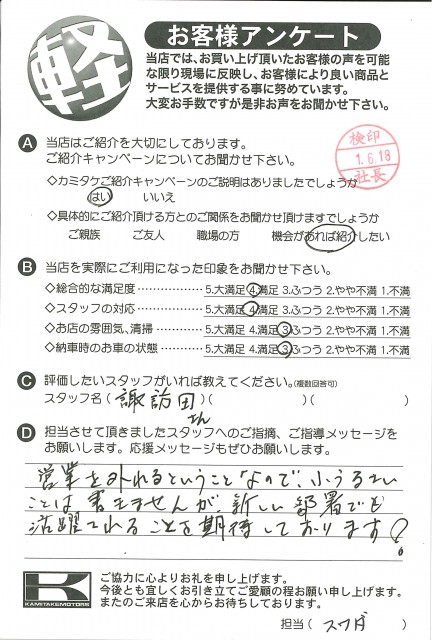 軽
お客様アンケート
当店では、お買い上げ頂いたお客様の声を可能
な限り現場に反映し、お客様により良い商品と
サービスを提供する事に努めています。
大変お手数ですが是非お声をお聞かせ下さい。
検印
1.6.18
社長
A 当店はご紹介を大切にしております。
ご紹介キャンペーンについてお聞かせ下さい。
◇カミタケご紹介キャンペーンのご説明はありましたでしょうか
はい いいえ
◇具体的にご紹介頂ける方とのご関係をお聞かせ頂けますでしょうか
ご親族 ご友人 職場の方 機会があれば紹介したい
B 当店を実際にご利用になった印象をお聞かせ下さい。
◇総合的な満足度 ……………… 5.大満足 4.満足 3.ふつう 2.やや不満 1.不満
◇スタッフの対応 ……………… 5.大満足 4.満足 3.ふつう 2.やや不満 1.不満
◇お店の雰囲気、清掃 ………… 5.大満足 4.満足 3.ふつう 2.やや不満 1.不満
◇納車時のお車の状態 ………… 5.大満足 4.満足 3.ふつう 2.やや不満 1.不満
C 評価したいスタッフがいれば教えてください。(複数回答可)
スタッフ名( 諏訪田さん )( )( )
D 担当させて頂きましたスタッフへのご指摘、ご指導メッセージを
お願いします。応援メッセージもぜひお願いします。
営業を外れるということなので、小うるさい
ことは書きませんが、新しい部署でも
活躍されることを期待しております!
K
KAMITAKEMOTORS
ご協力に心よりお礼を申し上げます。
今後とも宜しくお引き立てご愛顧の程お願い申し上げます。
またのご来店を心からお待ちしております。
担当( スワダ )